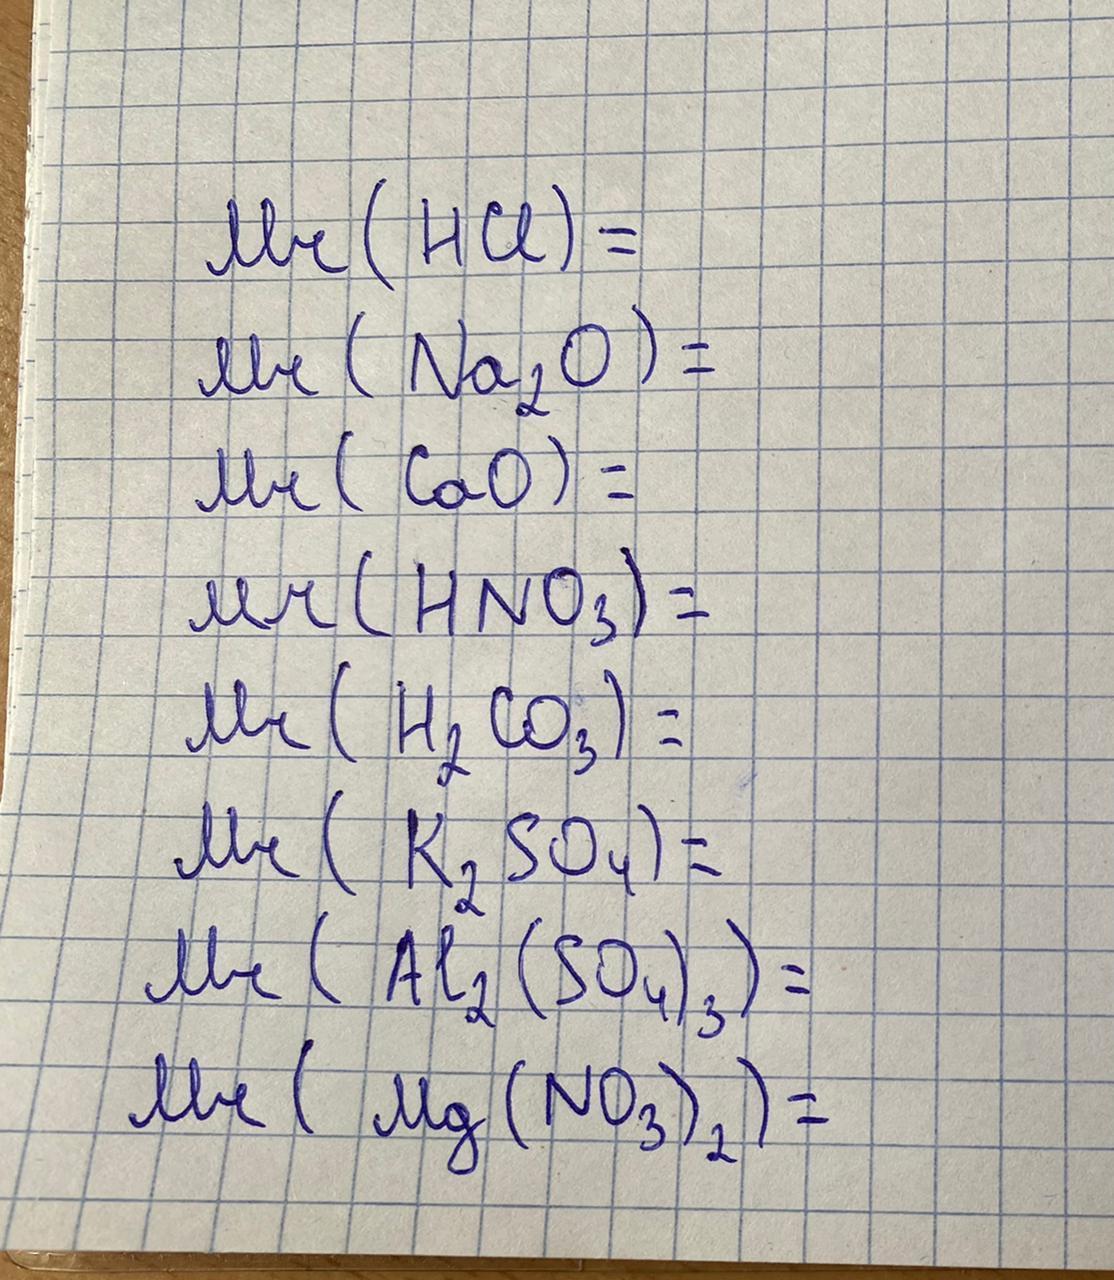 Mr(HCl)=
Mr(Na₂O)=
Mr(CaO)=
Mr(HNO₃)=
Mr(H₂CO₃)=
Mr(K₂SO₄)=
Mr(Al₂(SO₄)₃)=
Mr(Mg(NO₃)₂)=